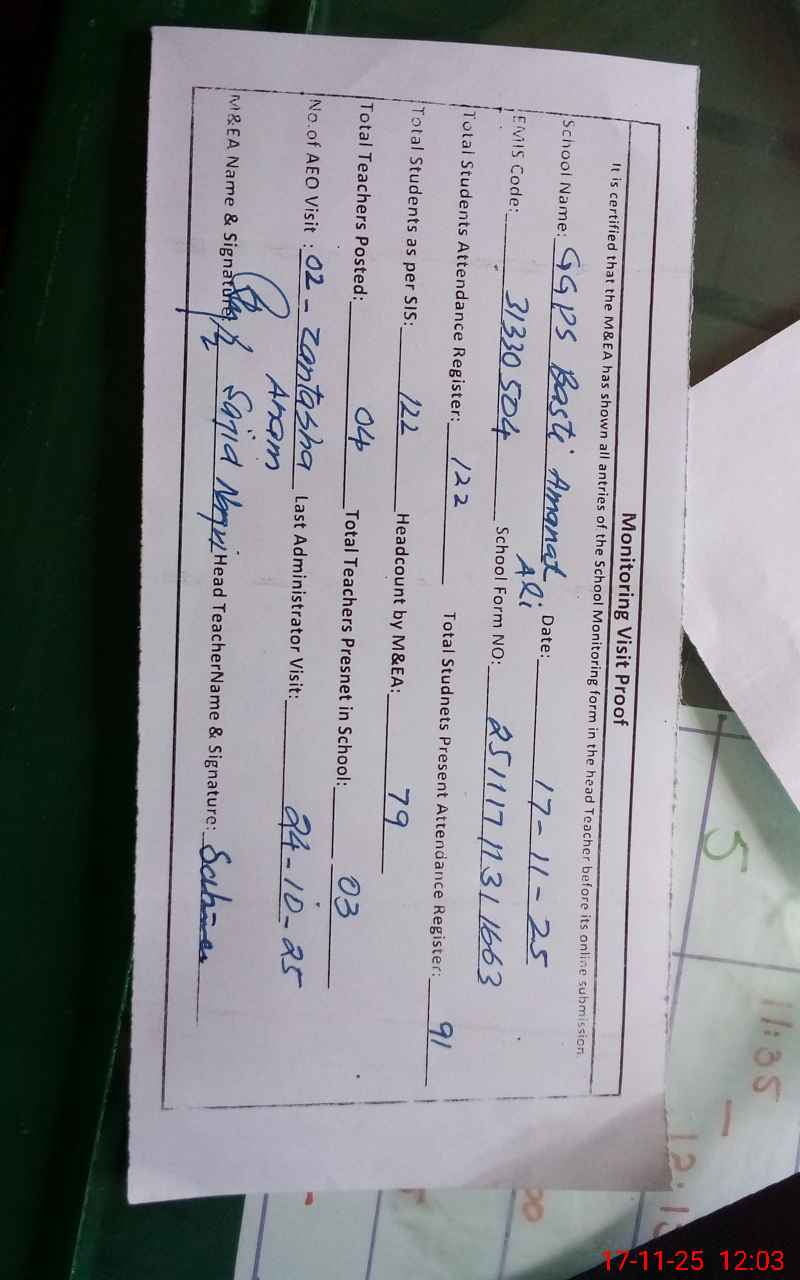 Monitoring Visit Proof
It is certified that the M&EA has shown all antries of the School Monitoring form in the head Teacher before its online submission.
School Name: GGPS Basti Amanat Ali Date: 17-11-25
EMIS Code: 31330504 School Form NO: 251117 1131 1663
Total Students Attendance Register: 122 Total Studnets Present Attendance Register: 91
Total Students as per SIS: 122 Headcount by M&EA: 79
Total Teachers Posted: 04 Total Teachers Presnet in School: 03
No.of AEO Visit : 02 - Zantasha Anam Last Administrator Visit: 24-10-25
M&EA Name & Signature: Sajid Naqvi Head TeacherName & Signature:
5
11:35 -
12:15
17-11-25 12:03